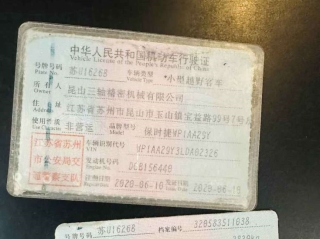 中华人民共和国机动车行驶证
Vehicle License of the People's Republic of China
号牌号码 苏U16268 车辆类型 小型越野客车
Plate No. Vehicle Type
所有人 昆山三轴精密机械有限公司
Owner
住址 江苏省苏州市昆山市玉山镇宝益路
Address
使用性质 非营运 品牌型号 保时捷WP1AA29Y
Use Character Model
江苏省苏州 车辆识别代号 WP1AA29Y3LDA02326
市公安局交 VIN
通警察支队 发动机号码
Engine No.
注册日期 2020-06-10 发证日期 2020-06-15
号牌号码 苏U16268 档案编号